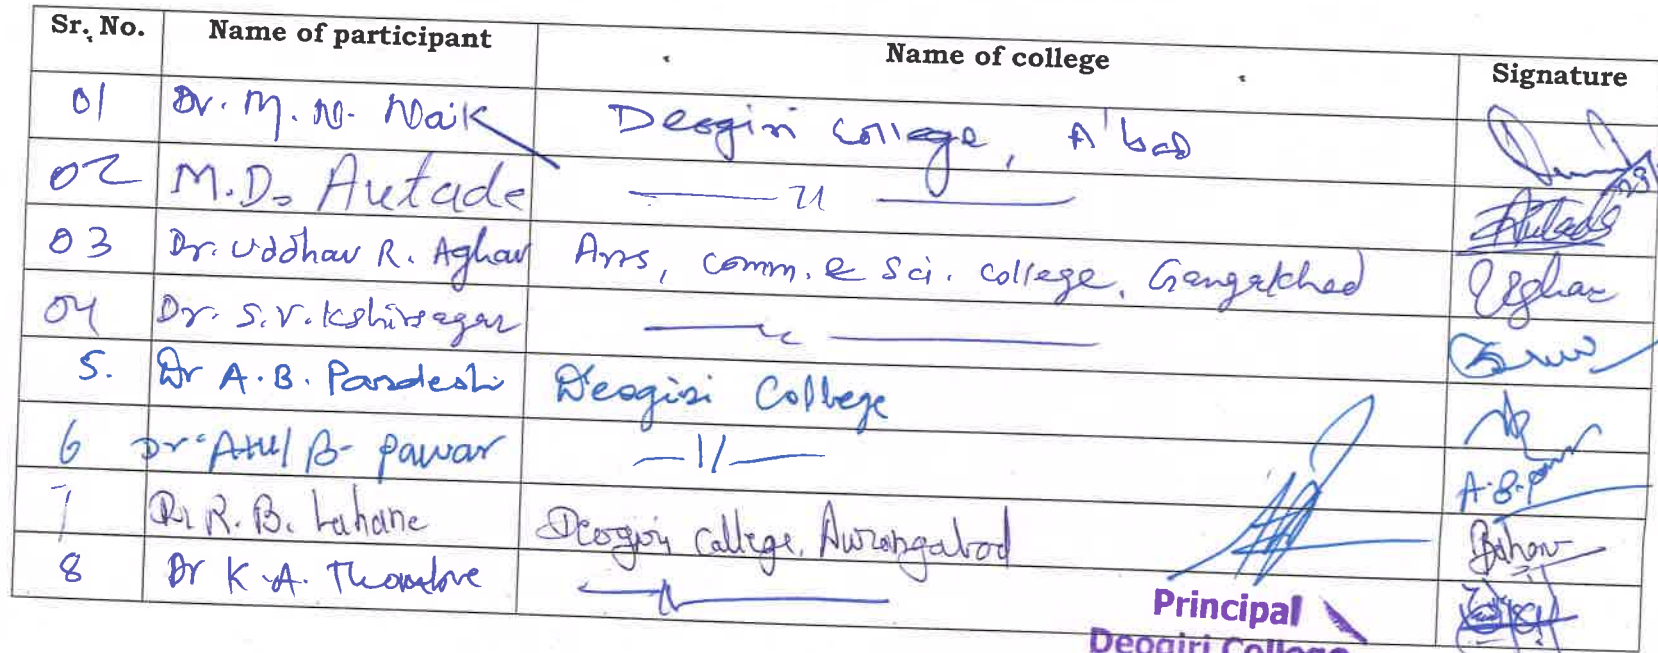 Sr. No. Name of participant Name of college Signature
01 Dr. M. N. Naik Deogiri College, A'bad
02 M.D. Autade —— 11 ——
03 Dr. Uddhav R. Aghav Arts, Comm. & Sci. College, Gangakhed Aghav
04 Dr. S. V. Kshirsagar —— " ——
5. Dr A. B. Pardeshi Deogiri College
6 Dr Atul B. Pawar —11— A.B.P
7 Dr. R. B. Lahane Deogiri College, Aurangabad
8 Dr K. A. —— " ——
Principal
Deogiri College